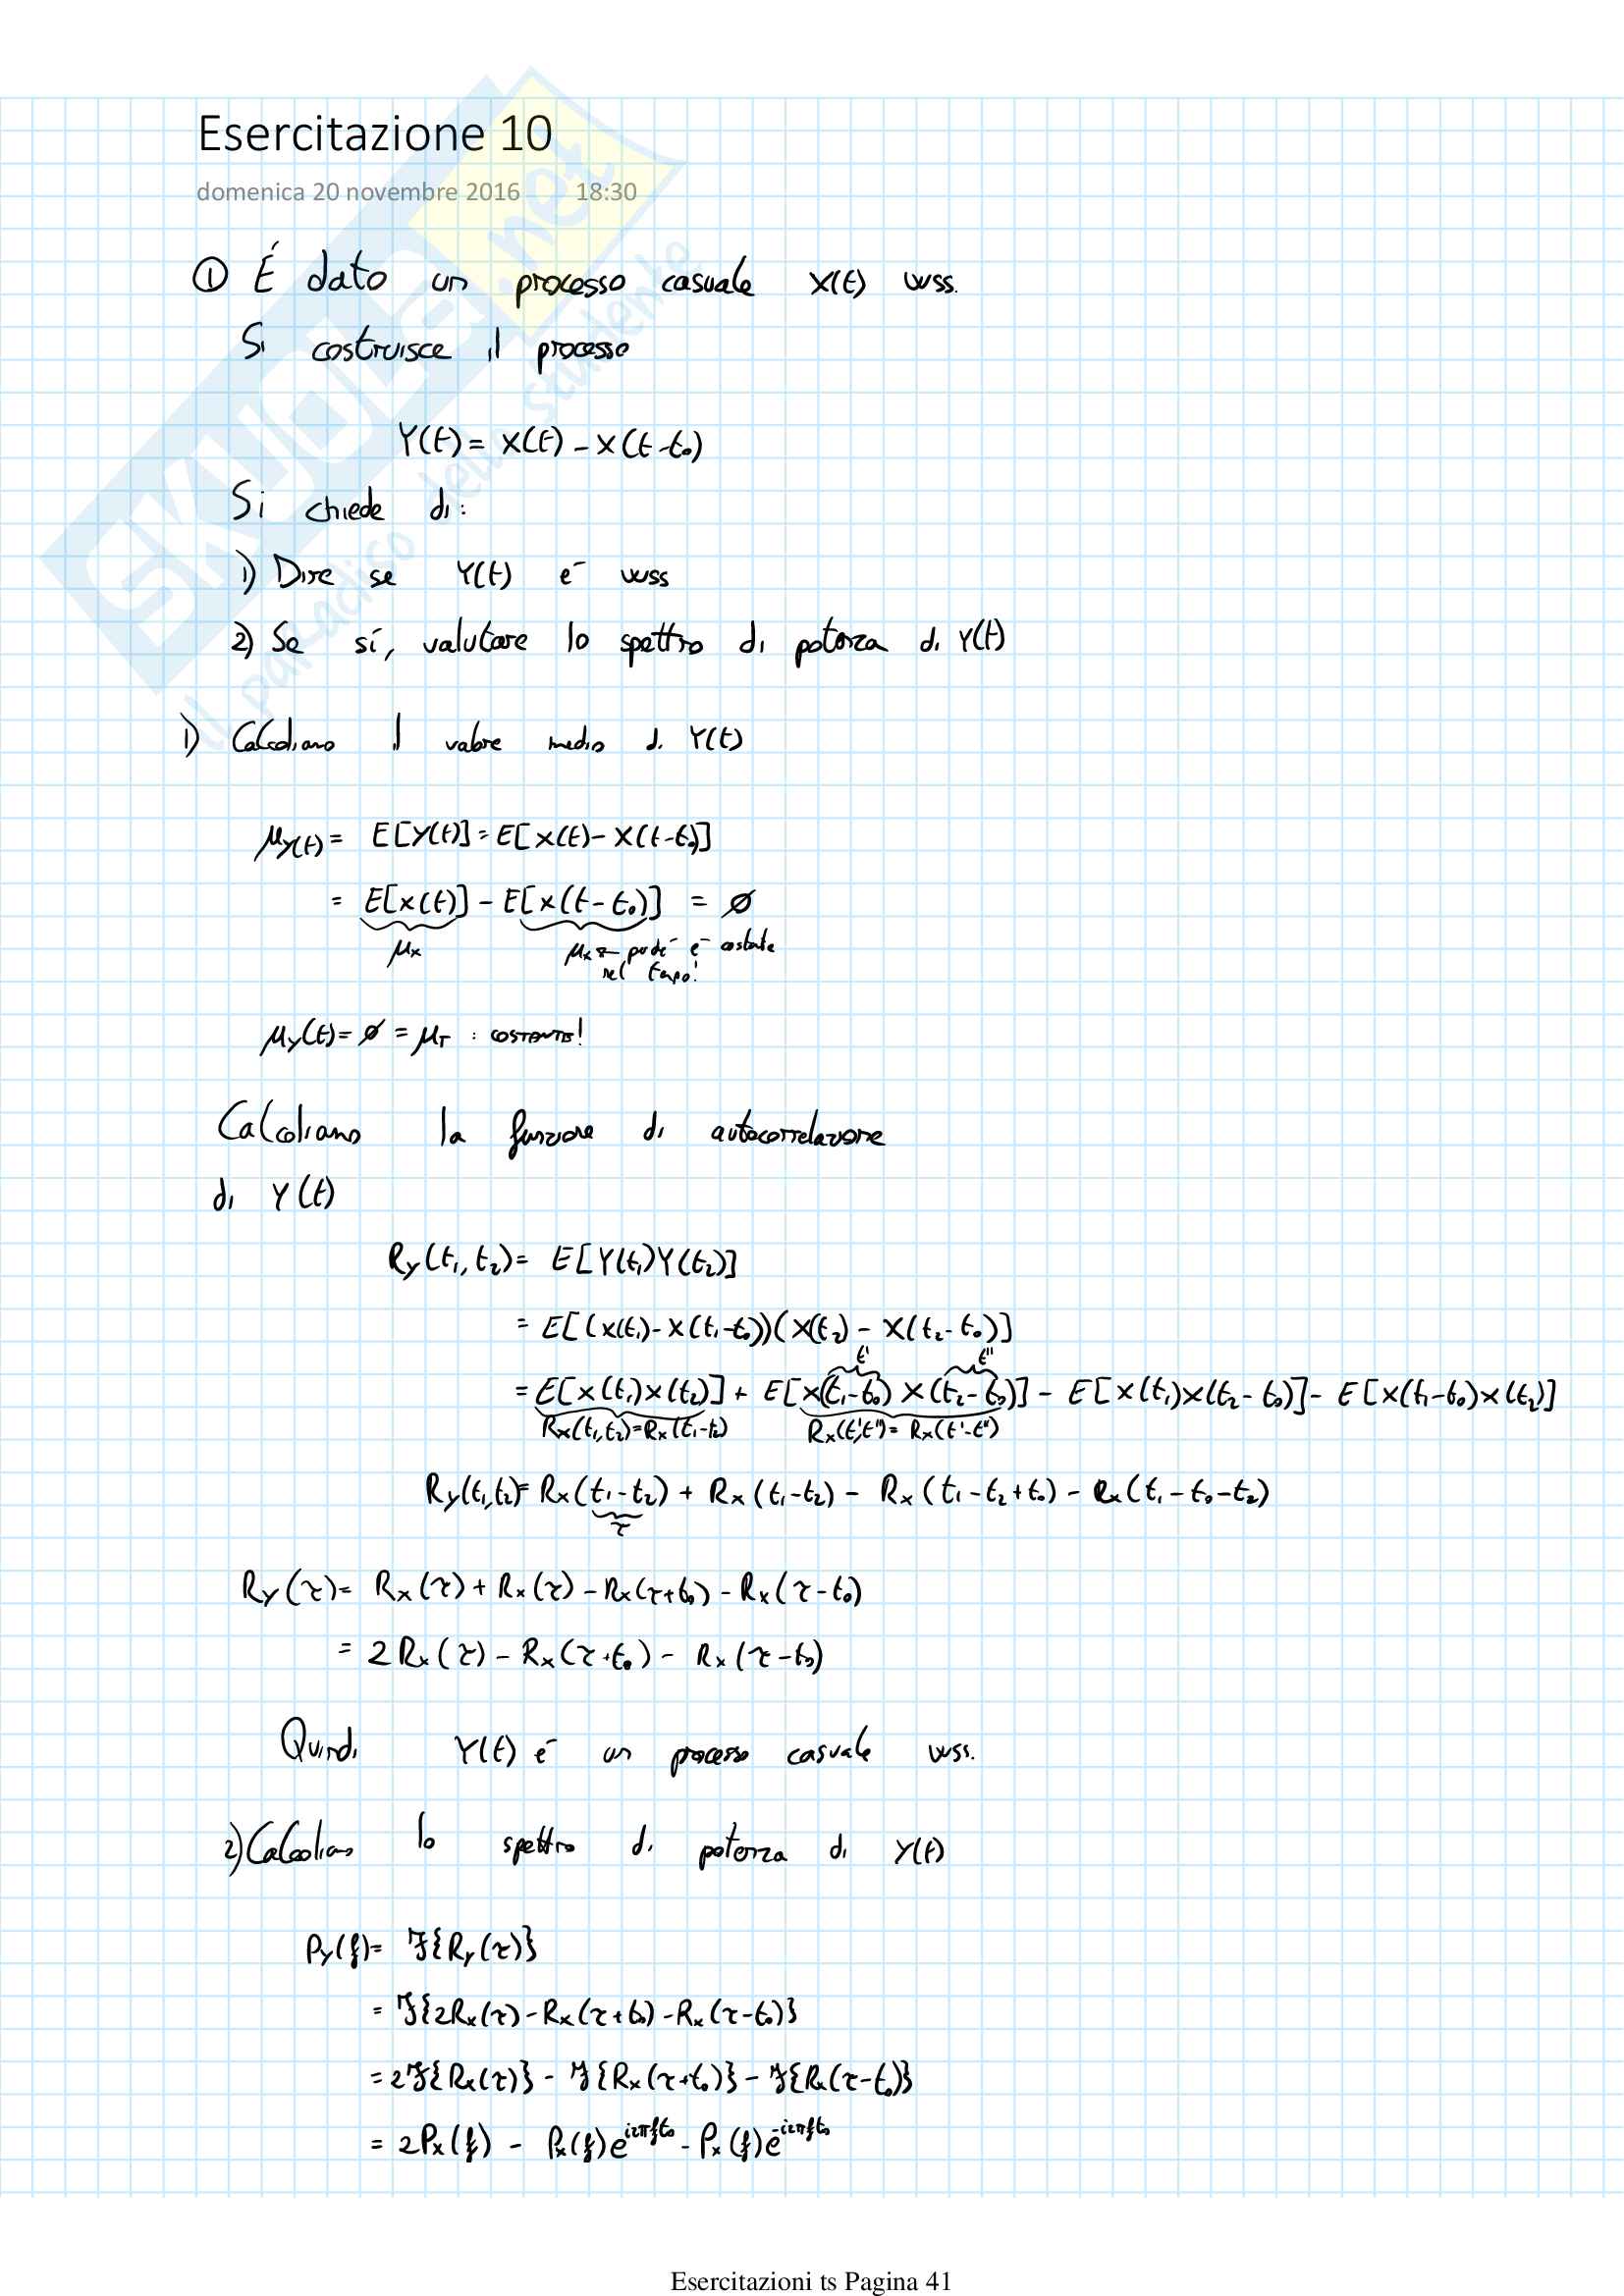 Esercitazione 10
domenica 20 novembre 2016 18:30
① É dato un processo casuale X(t) WSS.
Si costruisce il processo
Y(t) = X(t) - X(t-t₀)
Si chiede di:
1) Dire se Y(t) è WSS
2) Se sí, valutare lo spettro di potenza di Y(t)
1) Calcoliamo il valore medio di Y(t)
μ_Y(t) = E[Y(t)] = E[X(t) - X(t-t₀)]
= E[X(t)] - E[X(t-t₀)] = ∅
μ_X μ_X ← perché è costante
nel tempo!
μ_Y(t) = ∅ = μ_Y : COSTANTE!
Calcoliamo la funzione di autocorrelazione
di Y(t)
R_Y(t₁,t₂) = E[Y(t₁)Y(t₂)]
= E[(X(t₁) - X(t₁-t₀))(X(t₂) - X(t₂-t₀)]
t' t''
= E[X(t₁)X(t₂)] + E[X(t₁-t₀)X(t₂-t₀)] - E[X(t₁)X(t₂-t₀)] - E[X(t₁-t₀)X(t₂)]
R_X(t₁,t₂)=R_X(t₁-t₂) R_X(t',t'')=R_X(t'-t'')
R_Y(t₁,t₂) = R_X(t₁-t₂) + R_X(t₁-t₂) - R_X(t₁-t₂+t₀) - R_X(t₁-t₀-t₂)
τ
R_Y(τ) = R_X(τ) + R_X(τ) - R_X(τ+t₀) - R_X(τ-t₀)
= 2R_X(τ) - R_X(τ+t₀) - R_X(τ-t₀)
Quindi Y(t) è un processo casuale WSS.
2) Calcoliamo lo spettro di potenza di Y(t)
P_Y(f) = ℱ{R_Y(τ)}
= ℱ{2R_X(τ) - R_X(τ+t₀) - R_X(τ-t₀)}
= 2ℱ{R_X(τ)} - ℱ{R_X(τ+t₀)} - ℱ{R_X(τ-t₀)}
= 2P_X(f) - P_X(f)e^{i2πft₀} - P_X(f)e^{-i2πft₀}
Esercitazioni ts Pagina 41